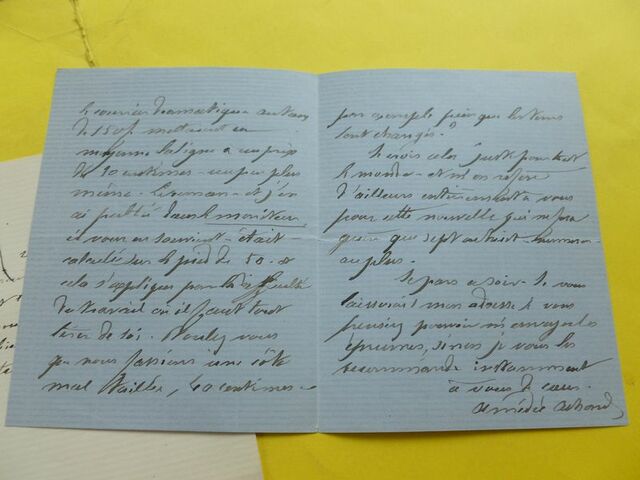 le courrier dramatique au taux
de 150 f. mettraient en
moyenne la ligne à un prix
de 30 centimes - un peu plus
même. Le roman - et j'en
ai publié dans le moniteur
il vous en souvient - était
calculé sur le pied de 50. &
cela s'applique par la difficulté
du travail où il faut tout
tirer de soi. Voulez vous
que nous fassions une côte
mal taillée, 40 centimes -
par exemple puisque les tems
sont changés. ?
Je crois cela juste pour tout
le monde - et m'en réfère
d'ailleurs entièrement à vous
pour cette nouvelle qui ne fera
guère que sept ou huit numéros
au plus.
Je pars ce soir. Je vous
laisserai mon adresse si vous
pensiez pouvoir m'envoyer les
épreuves, sinon je vous les
recommande instamment
à vous de cœur.
Amédée Achard